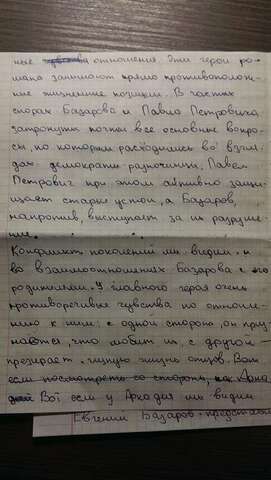 ные отношения эти герои ро-
мана занимают прямо противополож-
ные жизненные позиции. В частых
спорах Базарова и Павла Петровича
затронуты почти все основные вопро-
сы, по которым расходились во взгля-
дах демократы разночинцы. Павел
Петрович при этом активно защи-
щает старые устои, а Базаров,
напротив, выступает за их разруше-
ние.
Конфликт поколений мы видим и
во взаимоотношениях Базарова с его
родителями. У главного героя очень
противоречивые чувства по отноше-
нию к ним: с одной стороны, он приз-
наются, что любит их, с другой -
презирает "глупую жизнь отцов". Вот
если посмотреть со стороны, как Арка
дий Вот если у Аркадия мы видим
Евгений Базаров - представи